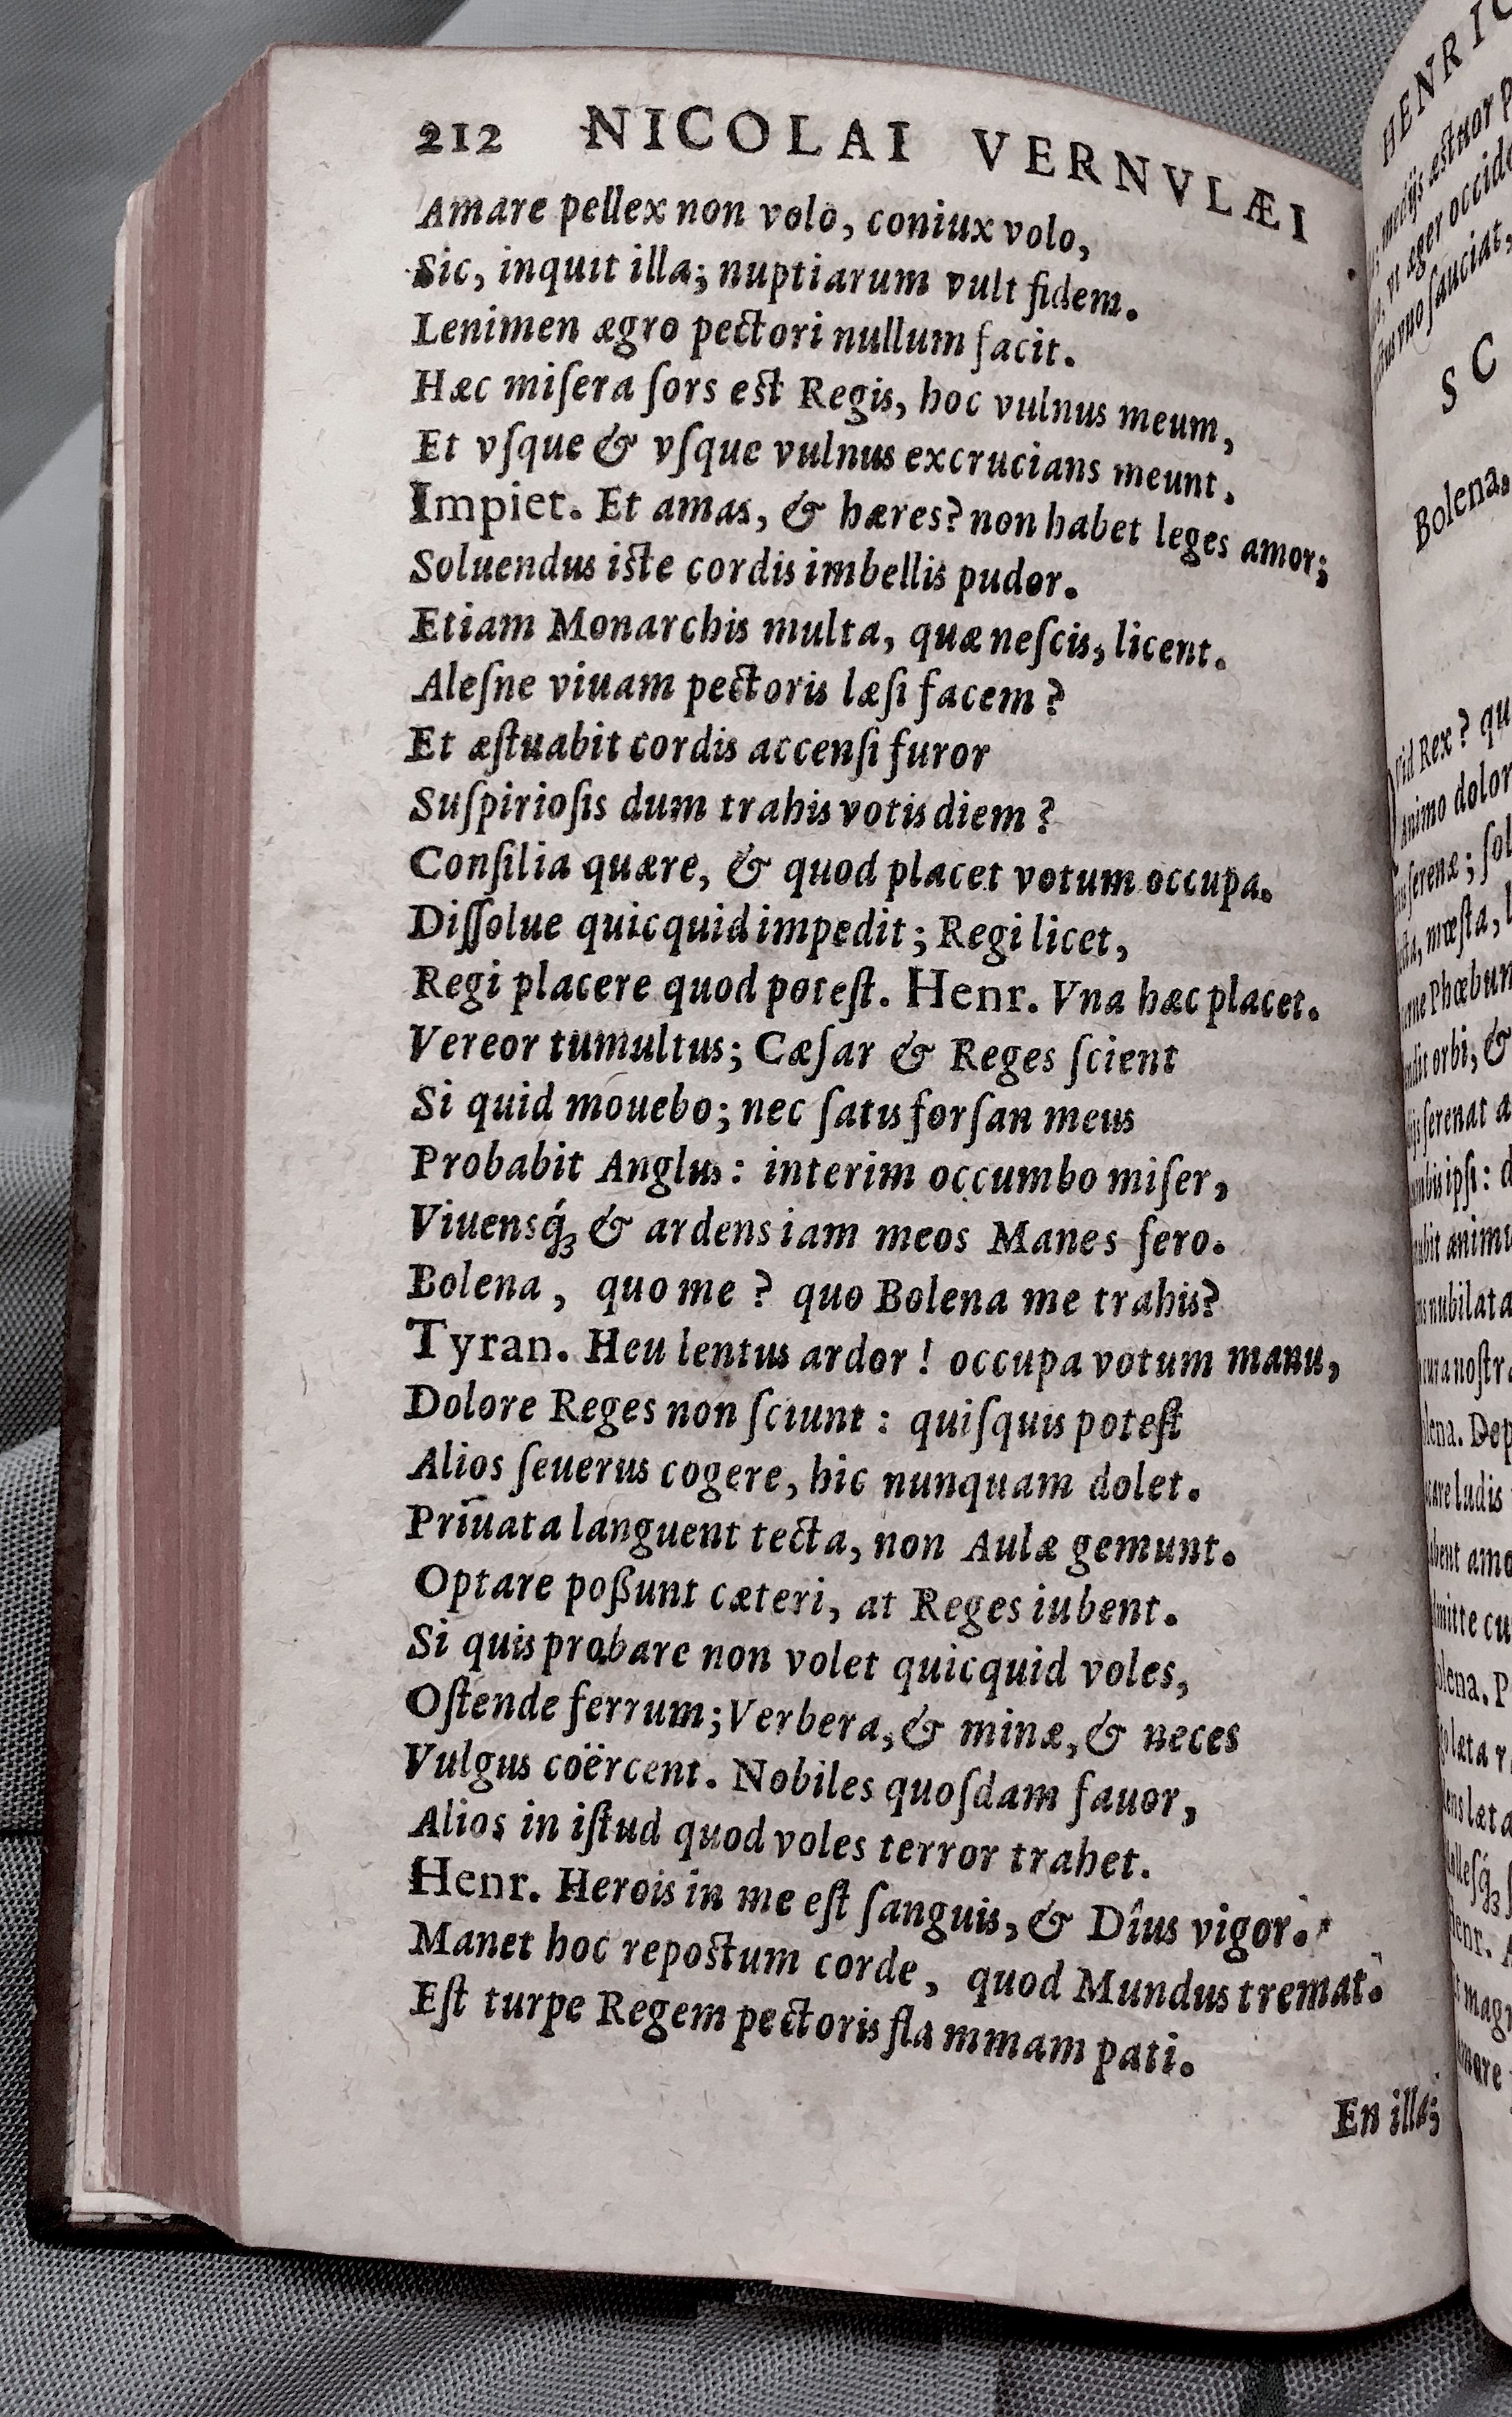 212 NICOLAI VERNVLÆI
Amare pellex non volo, coniux volo,
Sic, inquit illa; nuptiarum vult fidem.
Lenimen ægro pectori nullum facit.
Hæc miſera ſors est Regis, hoc vulnus meum,
Et vſque & vſque vulnus excrucians meunt.
Impiet. Et amas, & hæres? non habet leges amor;
Soluendus iste cordis imbellis pudor.
Etiam Monarchis multa, quæ neſcis, licent.
Aleſne viuam pectoris læſi facem?
Et æſtuabit cordis accenſi furor
Suſpirioſis dum trahis votis diem?
Conſilia quære, & quod placet votum occupa.
Diſſolue quicquid impedit; Regi licet,
Regi placere quod poteſt. Henr. Vna hæc placet.
Vereor tumultus; Cæſar & Reges ſcient
Si quid mouebo; nec ſatis forſan meus
Probabit Anglus: interim occumbo miſer,
Viuensq́ꝫ & ardens iam meos Manes fero.
Bolena, quo me? quo Bolena me trahis?
Tyran. Heu lentus ardor! occupa votum manu,
Dolore Reges non ſciunt: quiſquis poteſt
Alios ſeuerus cogere, hic nunquam dolet.
Priuata languent tecta, non Aulæ gemunt.
Optare poßunt cæteri, at Reges iubent.
Si quis probare non volet quicquid voles,
Oſtende ferrum; Verbera, & minæ, & neces
Vulgus coërcent. Nobiles quoſdam fauor,
Alios in iſtud quod voles terror trahet.
Henr. Herois in me eſt ſanguis, & Dîus vigor.
Manet hoc repostum corde, quod Mundus tremat.
Eſt turpe Regem pectoris fla mmam pati.
En illa;
HENRIC
SC
Bolena.
Rex? qu
animo dolor
ſerenæ; ſol
mœſta,
Phœbum
orbi, &
ſerenat
ipſi:
animu
nubilata
noſtr
Dop
ludis
amo
cu
P
læta
læta
Henr.